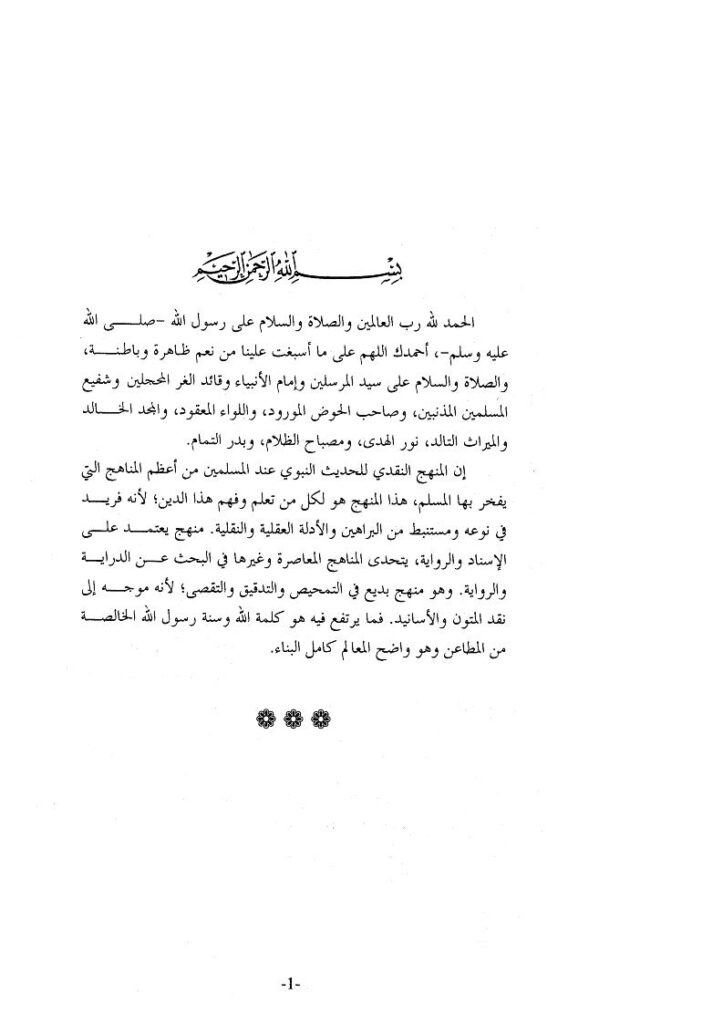 بسم الله الرحمن الرحيم
الحمد لله رب العالمين والصلاة والسلام على رسول الله –صلى الله
عليه وسلم–، أحمدك اللهم على ما أسبغت علينا من نعم ظاهرة وباطنة،
والصلاة والسلام على سيد المرسلين وإمام الأنبياء وقائد الغر المحجلين وشفيع
المسلمين المذنبين، وصاحب الحوض المورود، واللواء المعقود، والمجد الخالد
والميراث التالد، نور الهدى، ومصباح الظلام، وبدر التمام.
إن المنهج النقدي للحديث النبوي عند المسلمين من أعظم المناهج التي
يفخر بها المسلم، هذا المنهج هو لكل من تعلم وفهم هذا الدين؛ لأنه فريد
في نوعه ومستنبط من البراهين والأدلة العقلية والنقلية. منهج يعتمد على
الإسناد والرواية، يتحدى المناهج المعاصرة وغيرها في البحث عن الدراية
والرواية. وهو منهج بديع في التمحيص والتدقيق والتقصى؛ لأنه موجه إلى
نقد المتون والأسانيد. فما يرتفع فيه هو كلمة الله وسنة رسول الله الخالصة
من المطاعن وهو واضح المعالم كامل البناء.
-1-